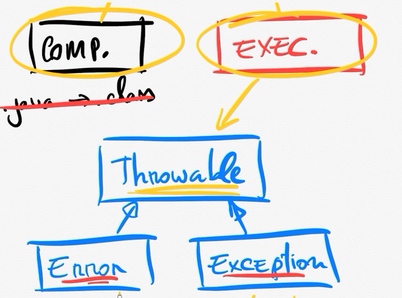 COMP.
EXEC.
.java → .class
Throwable
Error
Exception